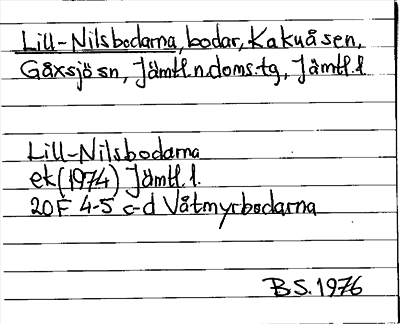 Lill-Nilsbodarna, bodar, Kakuåsen,
Gåxsjö sn, Jämtl.n.doms.tg, Jämtl.l
Lill-Nilsbodarna
ek (1974) Jämtl.l.
20F 4-5 c-d Våtmyrbodarna
B.S. 1976